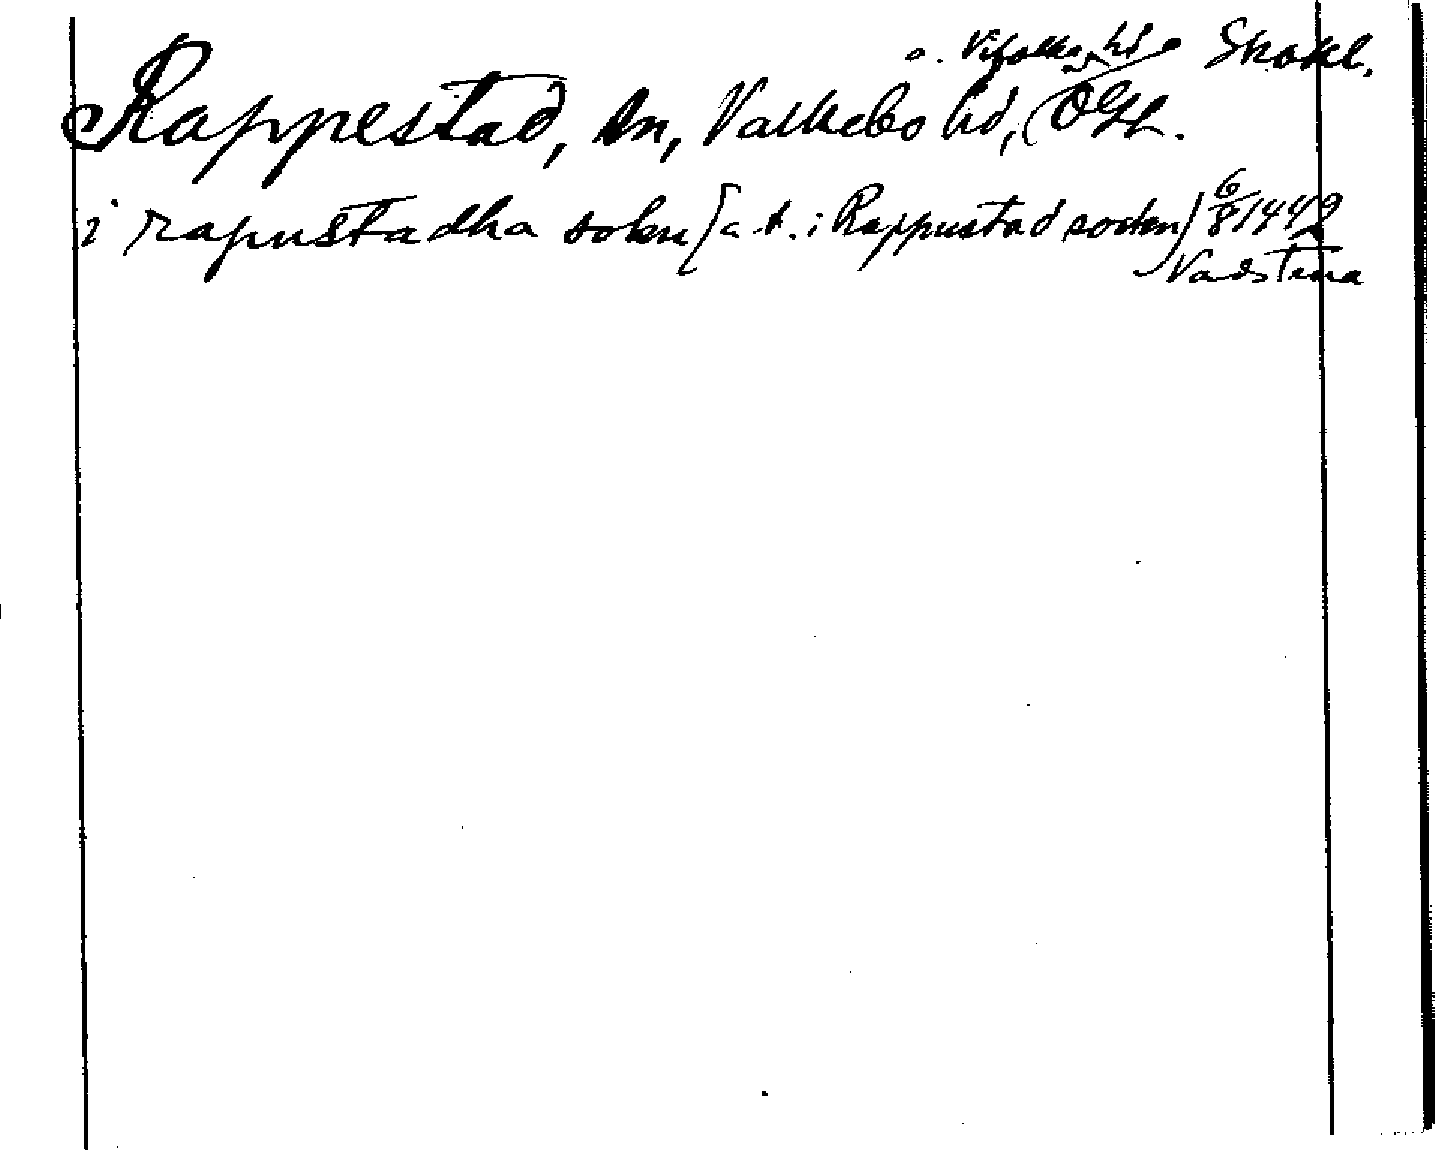 o. Vifolka hd Skokl.
Rappestad, sn, Valkebo hd, Ögl.
i rapustadha sokn [a. t. : Rappustad socken] 6/8 1442
Vadstena